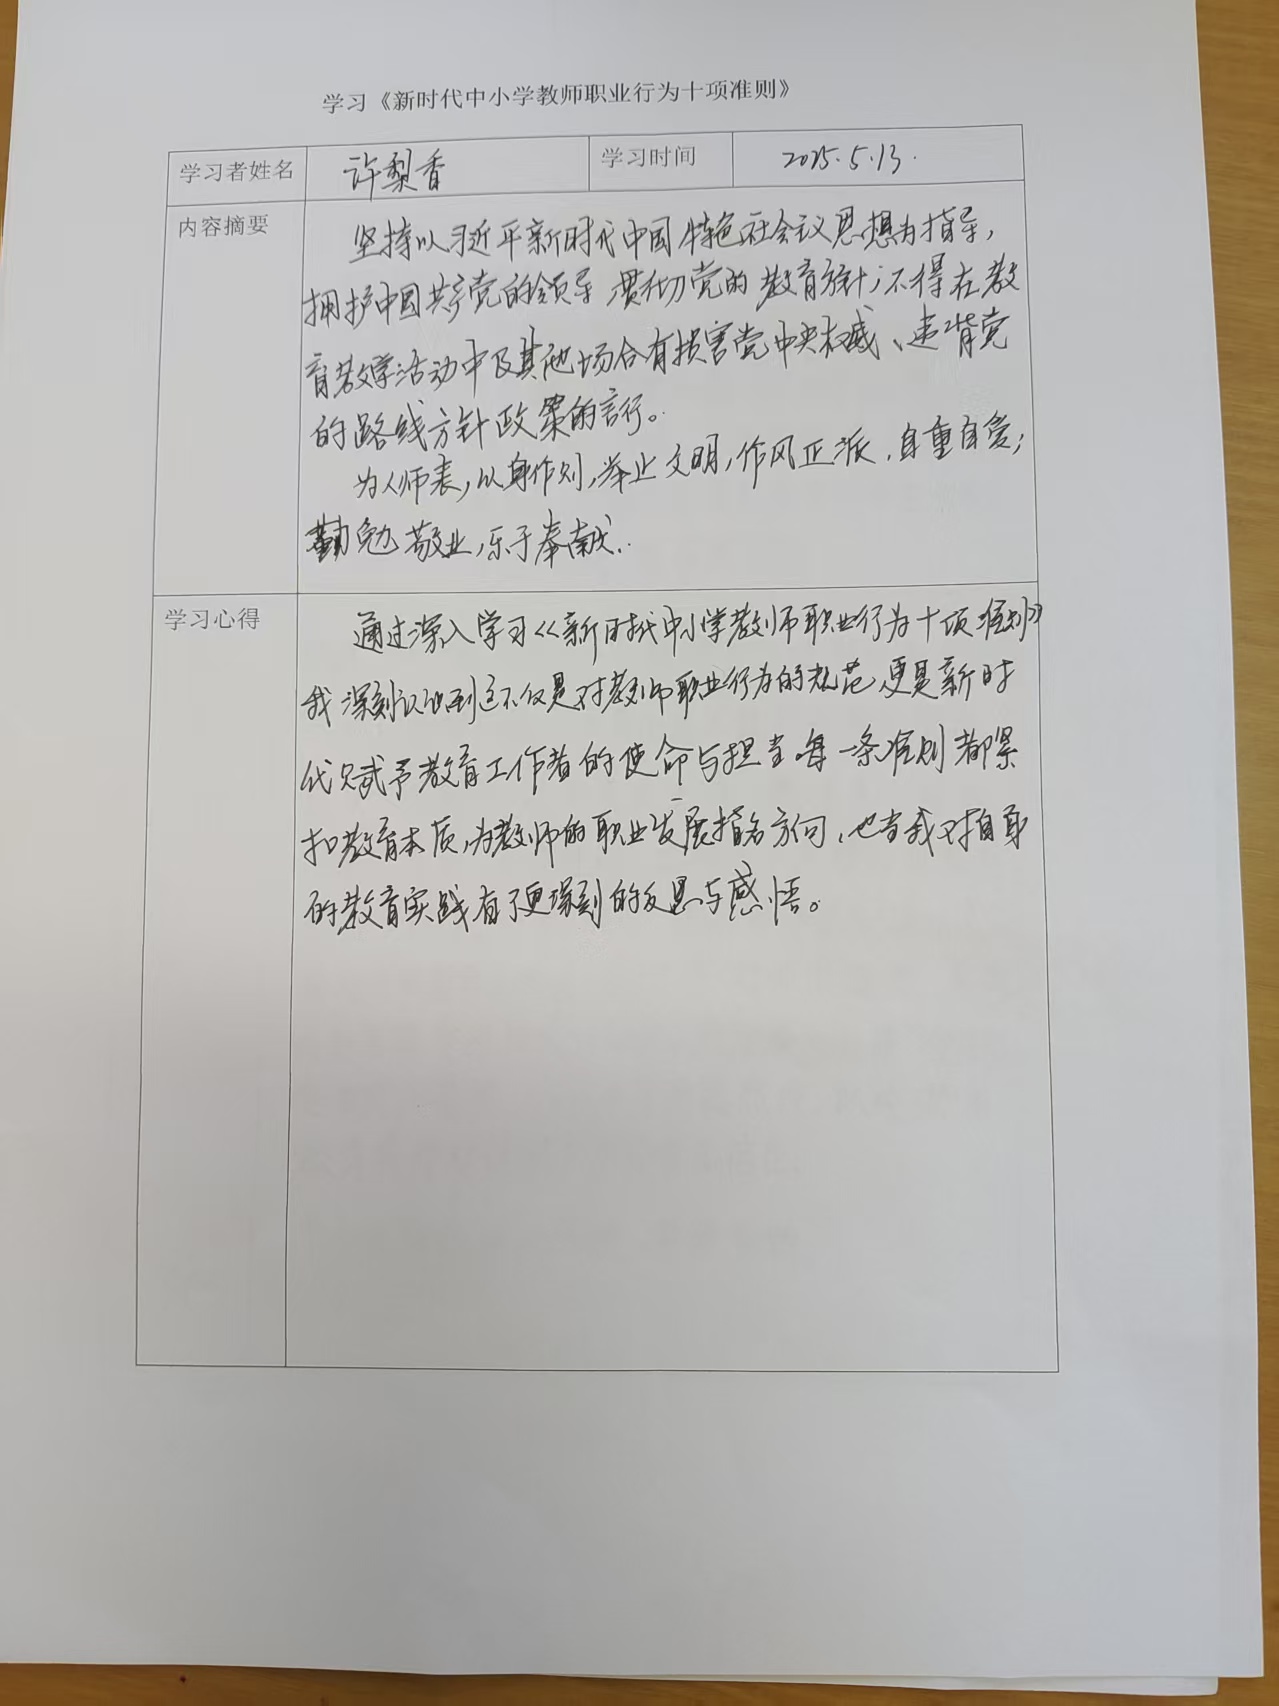 学习《新时代中小学教师职业行为十项准则》
学习者姓名 许梨香 学习时间 2025.5.13.
内容摘要
坚持以习近平新时代中国特色社会议思想为指导，
拥护中国共产党的领导 贯彻党的教育方针；不得在教
育教学活动中及其他场合有损害党中央权威、违背党
的路线方针政策的言行。
为人师表，以身作则，举止文明，作风正派，自重自爱；
勤勉敬业，乐于奉献．
学习心得
通过深入学习《新时代中小学教师职业行为十项准则》
我深刻认识到这不仅是对教师职业行为的规范，更是新时
代赋予教育工作者的使命与担当。每一条准则都紧
扣教育本质，为教师的职业发展指名方向，也有我对自身
的教育实践有了更深刻的反思与感悟。